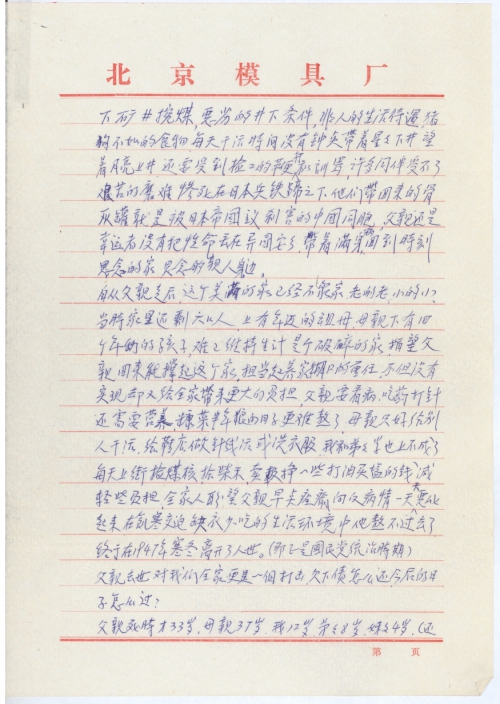 北京模具厂
下矿井挖煤,恶劣的井下条件,非人的生活待遇猪
狗不如的食物,每天干活时间没有钟点带着星星下井望
着月亮上井 还要受到监工的鞭打和训骂,许多同伴受不了
艰苦的磨难 惨死在日本兵铁蹄之下.他们带回来的骨
灰罐就是被日本帝国议剥害的中国同胞,父亲还是
幸运者没有把性命丢在异国它乡,带着满身 回到时刻
思念的家 见念的亲人身边。
自从父亲走后,这个美满的家已经不像家,老的老,小的小?
当时家里还剩六口人,上有年迈的祖母,母亲下有四
个年幼的孩子,难已维持生计 是个破碎的家,指望父
亲回来能撑起这个家,担当起养家糊口的重任.不但没有
实现却又给全家带来更大的负担,父亲要看病.吃药打针
还需要营养,糠菜半年粮的日子更难熬了,母亲只好给别
人干活,给鞋店做针线活或洗衣服,我和弟弟也上不成了
每天上街捡煤核 拾柴禾,卖 挣一些打油买盐的钱,减
轻些负担.全家人盼望父亲早点痊癒,向仅病情一天天恶化
起来在飢寒交迫缺衣少吃的生活环境中他熬不过去了
终于在1947年寒冬离开了人世。(那已是国民党统治時期)
父亲去世对我们全家更是一個打击,欠下债怎么还今后的日
子怎么过?
父親死時才33岁,母親37岁.我12岁.弟弟8岁,妹妹4岁,(还
第 页